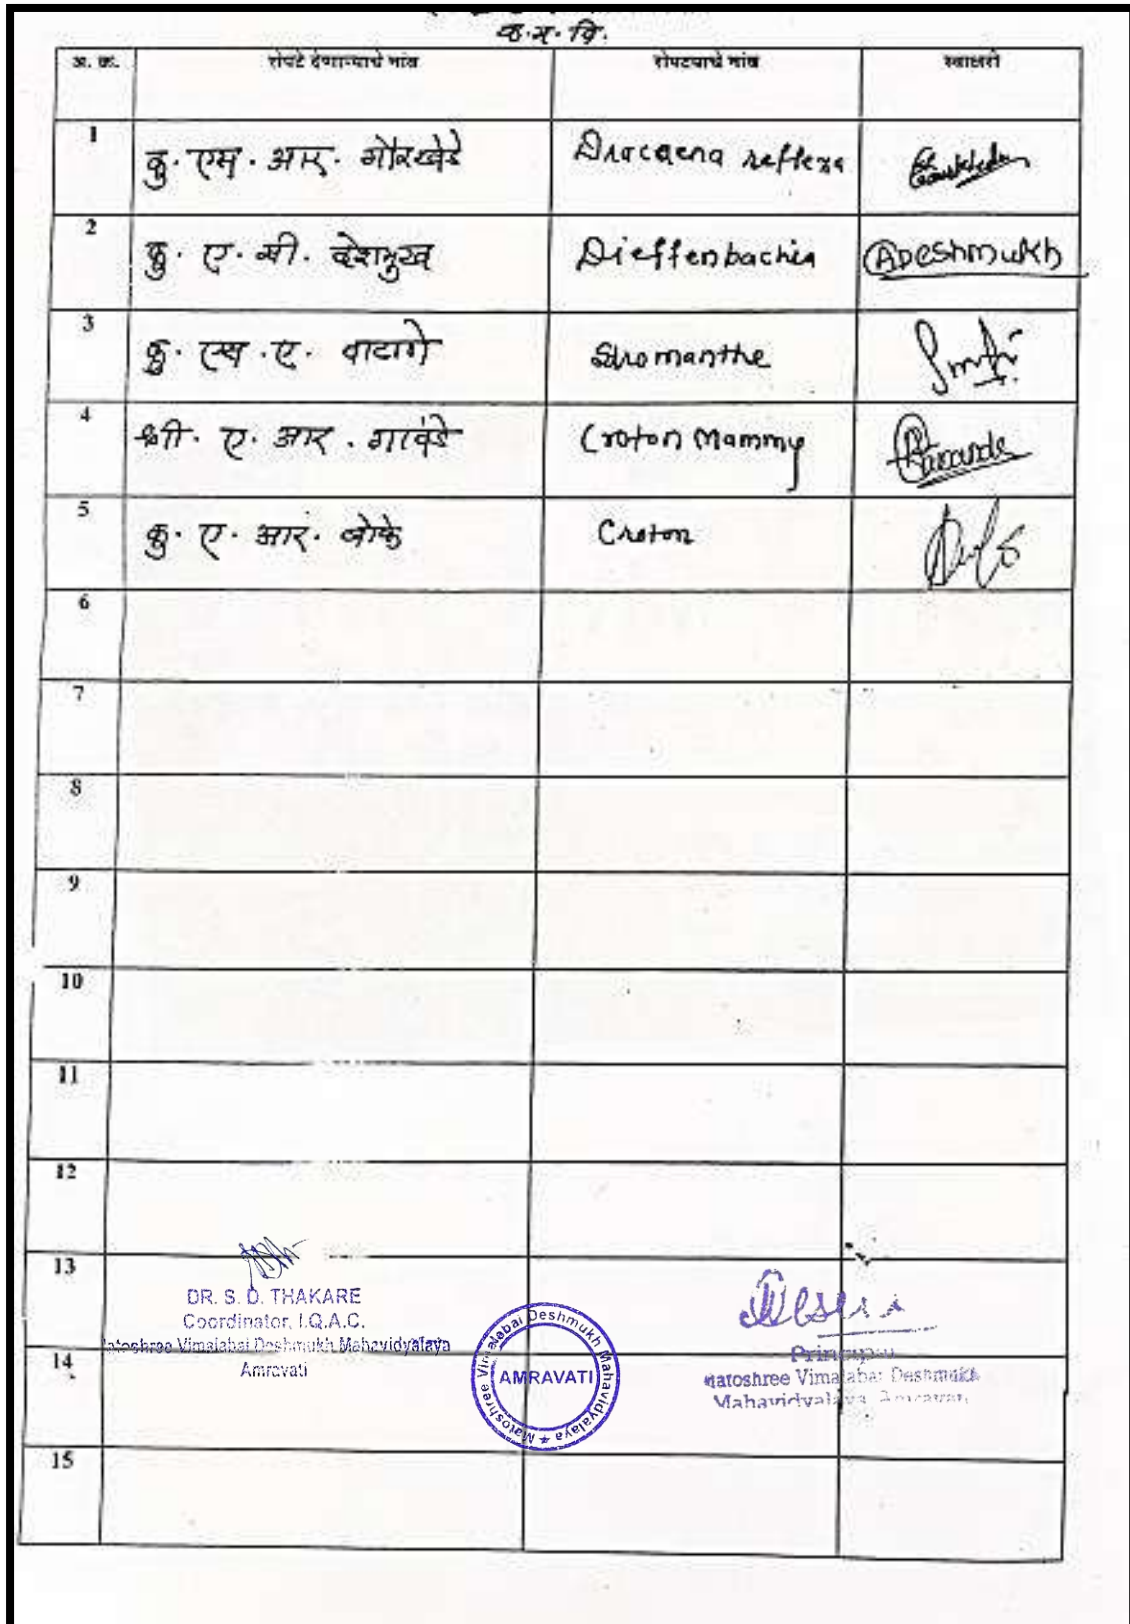 क.म.वि.
अ. क्रं. रोपटे देणाऱ्याचे नांव रोपटयाचे नांव स्वाक्षरी
1 कु. एम. आर. गोरखेडे Dracaena reflexa
2 कु. ए. सी. देशमुख Dieffenbachia ADeshmukh
3 कु. एस. ए. वाटाणे Stromanthe
4 श्री. ए. आर. गावंडे Croton Mammy Gawande
5 कु. ए. आर. बोके Croton
6
7
8
9
10
11
12
13
DR. S. D. THAKARE
Coordinator, I.Q.A.C.
Matoshree Vimalabai Deshmukh Mahavidyalaya
Amravati
Matoshree Vimalabai Deshmukh Mahavidyalaya
AMRAVATI
Principal
Matoshree Vimalabai Deshmukh
Mahavidyalaya, Amravati
14
15